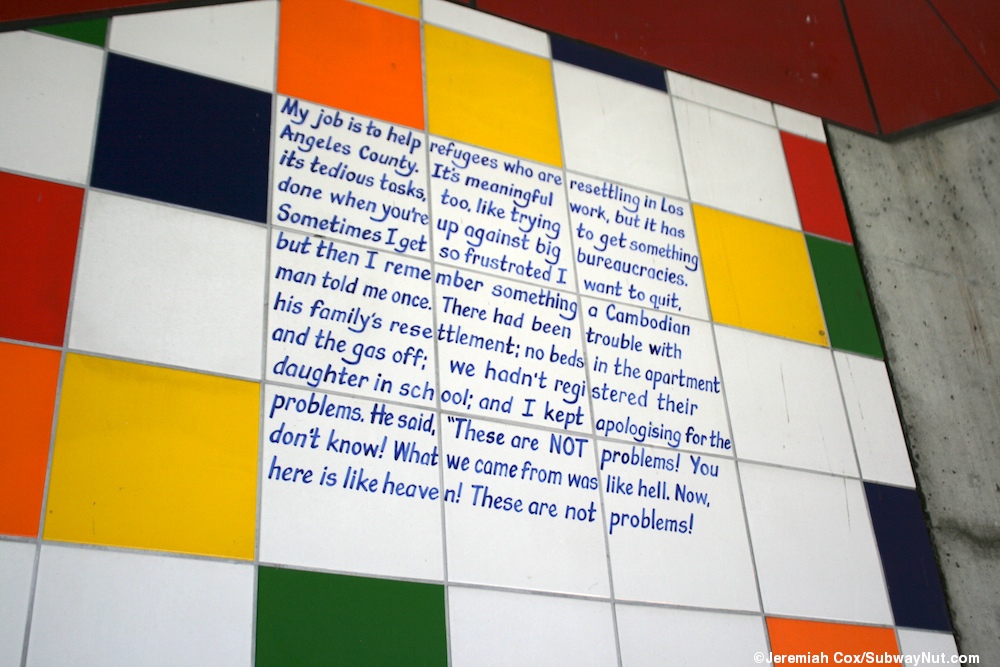 My job is to help refugees who are resettling in Los
Angeles County. It's meaningful work, but it has
its tedious tasks, too, like trying to get something
done when you're up against big bureaucracies.
Sometimes I get so frustrated I want to quit,
but then I remember something a Cambodian
man told me once. There had been trouble with
his family's resettlement; no beds in the apartment
and the gas off; we hadn't registered their
daughter in school; and I kept apologising for the
problems. He said, "These are NOT problems! You
don't know! What we came from was like hell. Now,
here is like heaven! These are not problems!
©Jeremiah Cox/SubwayNut.com